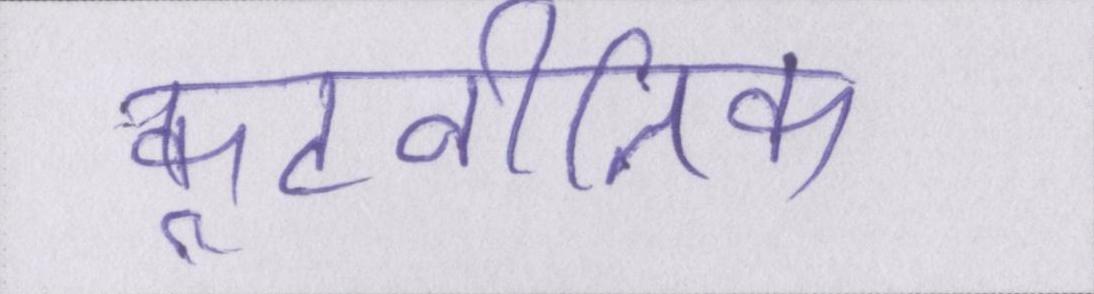 कूटनीतिक